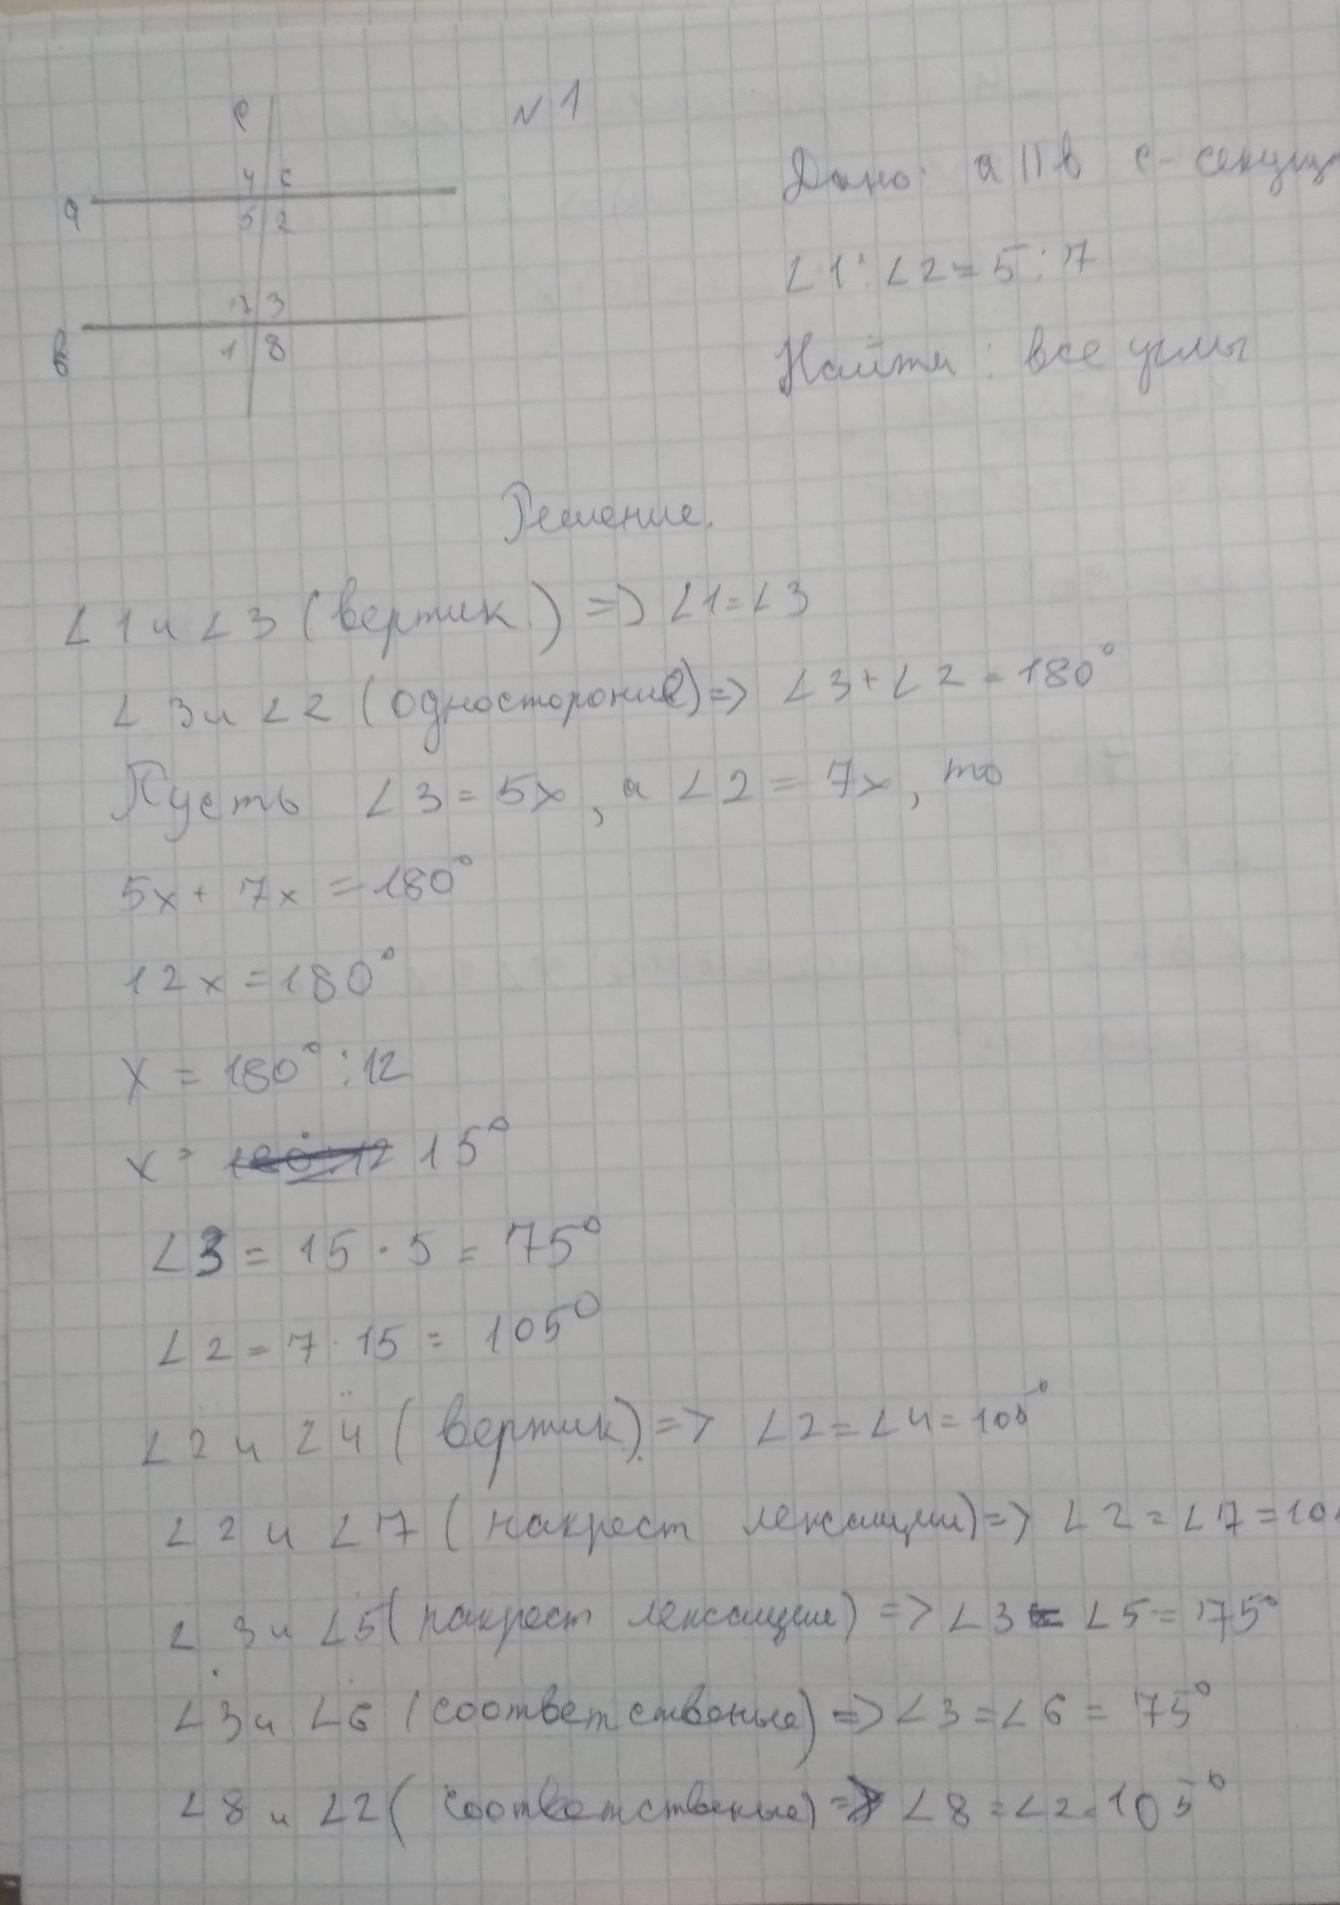 №1
c
4 6
a
5 2
7 3
в
1 8
Дано: a || в c - секущ
∠1 : ∠2 = 5 : 7
Найти: все углы
Решение.
∠1 и ∠3 (вертик.) => ∠1 = ∠3
∠3 и ∠2 (одностороние) => ∠3 + ∠2 = 180°
Пусть ∠3 = 5x, а ∠2 = 7x, то
5x + 7x = 180°
12x = 180°
x = 180° : 12
x = 15°
∠3 = 15 · 5 = 75°
∠2 = 7 · 15 = 105°
∠2 и ∠4 (вертик.) => ∠2 = ∠4 = 105°
∠2 и ∠7 (накрест лежащии) => ∠2 = ∠7 = 10
∠3 и ∠5 (накрест лежащие) => ∠3 = ∠5 = 75°
∠3 и ∠6 (соответственые) => ∠3 = ∠6 = 75°
∠8 и ∠2 (соответственые) => ∠8 = ∠2 = 105°